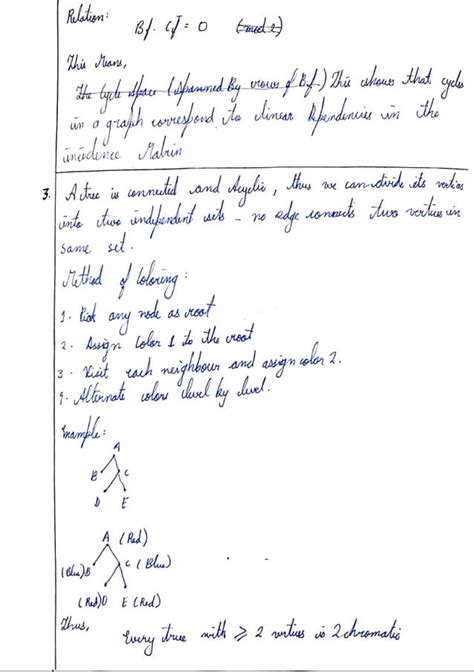 Relation:
Bf. Cf^T = 0 (mod 2)
This Means,
The Cycle Space (Spanned By rows of Bf.) This shows that cycles
in a graph correspond to linear Dependencies in the
incidence Matrix
3. A tree is connected and Acyclic, thus we can divide its vertices
into two independent sets - no edge connects two vertices in
same set.
Method of Coloring:
1. Pick any node as root
2. Assign Color 1 to the root
3. Visit each neighbour and assign color 2.
4. Alternate colors level by level.
Example:
A
B C
D E
A (Red)
(Blue) B C (Blue)
(Red) D E (Red)
Thus,
Every tree with ⩾ 2 vertices is 2 chromatic